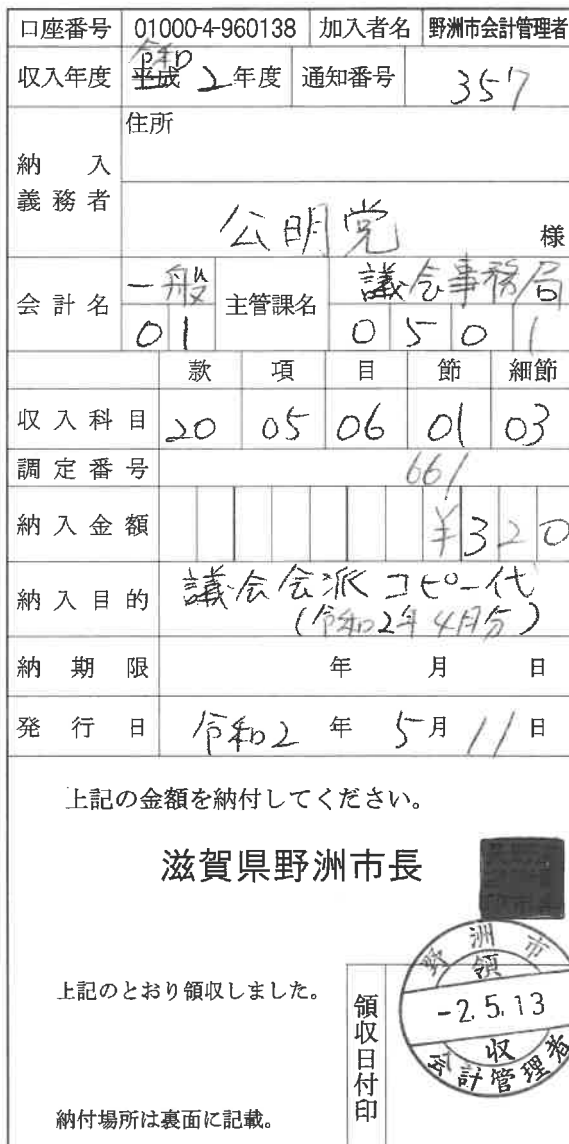 口座番号 01000-4-960138 加入者名 野洲市会計管理者
令和
収入年度 平成 2年度 通知番号 357
住所
納入義務者
公明党 様
会計名 一般 主管課名 議会事務局
01 0501
款 項 目 節 細節
収入科目 20 05 06 01 03
調定番号 661
納入金額 ¥320
納入目的 議会会派コピー代
(令和2年4月分)
納期限 年 月 日
発行日 令和2年 5月 11日
上記の金額を納付してください。
滋賀県野洲市長
野洲市
領
-2.5.13
収
会計管理者
上記のとおり領収しました。
領収日付印
納付場所は裏面に記載。